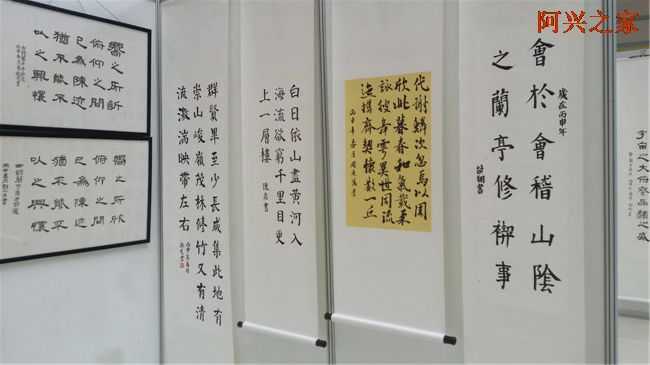 阿兴之家
嚮之所訢
俯仰之間
已為陳迹
猶不能不
以之興懷
嚮之所欣
俯仰之間
已為陳迹
猶不能不
以之興懷
群賢畢至少長咸集此地有
崇山峻嶺茂林修竹又有清
流激湍映帶左右
白日依山盡黄河入
海流欲窮千里目更
上一層樓
代謝鱗次忽焉以周
欣此暮春和氣載柔
詠彼舞雩異世同流
迺攜齊契懷散一丘
歲在丙申年
會於會稽山陰
之蘭亭修禊事
宇宙之大俯察品類之盛